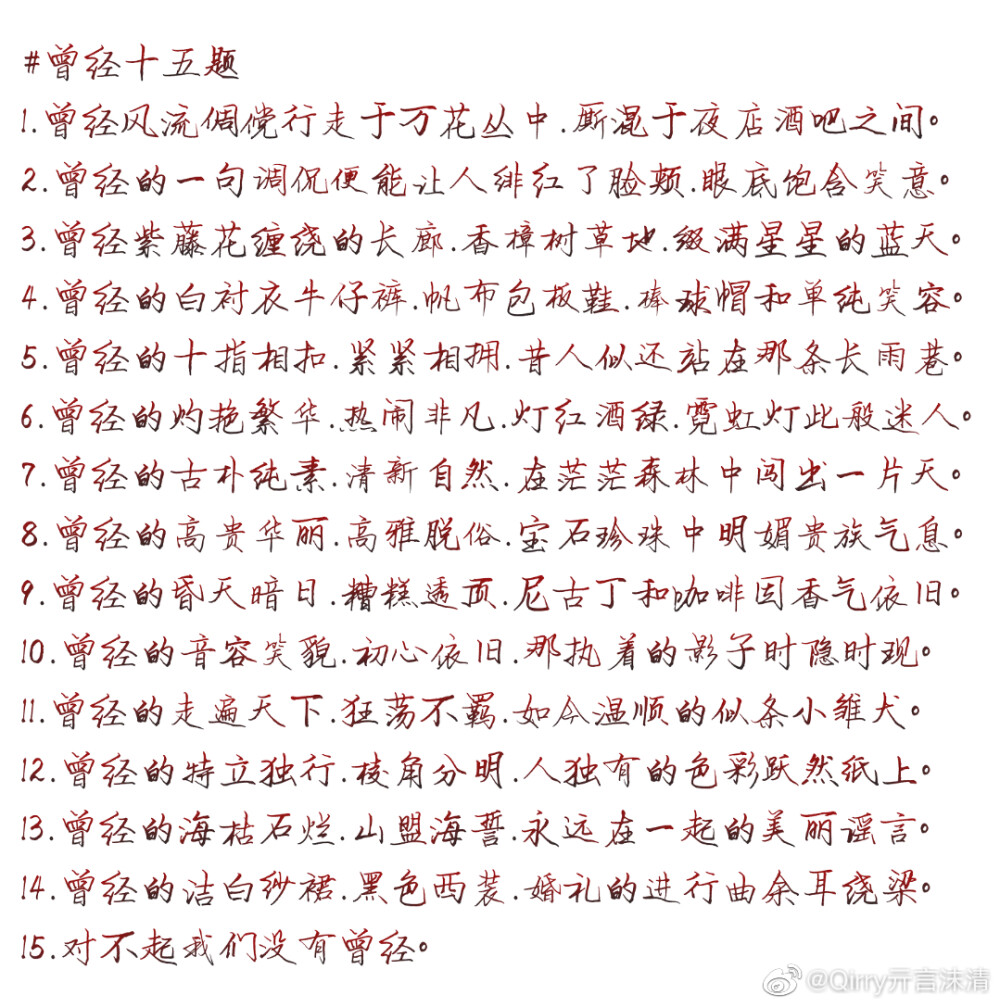 #曾经十五题
1.曾经风流倜傥行走于万花丛中.厮混于夜店酒吧之间。
2.曾经的一句调侃便能让人绯红了脸颊.眼底饱含笑意。
3.曾经紫藤花缠绕的长廊.香樟树草地.缀满星星的蓝天。
4.曾经的白衬衣牛仔裤.帆布包板鞋.棒球帽和单纯笑容。
5.曾经的十指相扣.紧紧相拥.昔人似还站在那条长雨巷。
6.曾经的灼艳繁华.热闹非凡.灯红酒绿.霓虹灯此般迷人。
7.曾经的古朴纯素.清新自然.在茫茫森林中闯出一片天。
8.曾经的高贵华丽.高雅脱俗.宝石珍珠中明媚贵族气息。
9.曾经的昏天暗日.糟糕透顶.尼古丁和咖啡因香气依旧。
10.曾经的音容笑貌.初心依旧.那执着的影子时隐时现。
11.曾经的走遍天下.狂荡不羁.如今温顺的似条小雏犬。
12.曾经的特立独行.棱角分明.人独有的色彩跃然纸上。
13.曾经的海枯石烂.山盟海誓.永远在一起的美丽谣言。
14.曾经的洁白纱裙.黑色西装.婚礼的进行曲余耳绕梁。
15.对不起我们没有曾经。
@Qirry亓言沫清